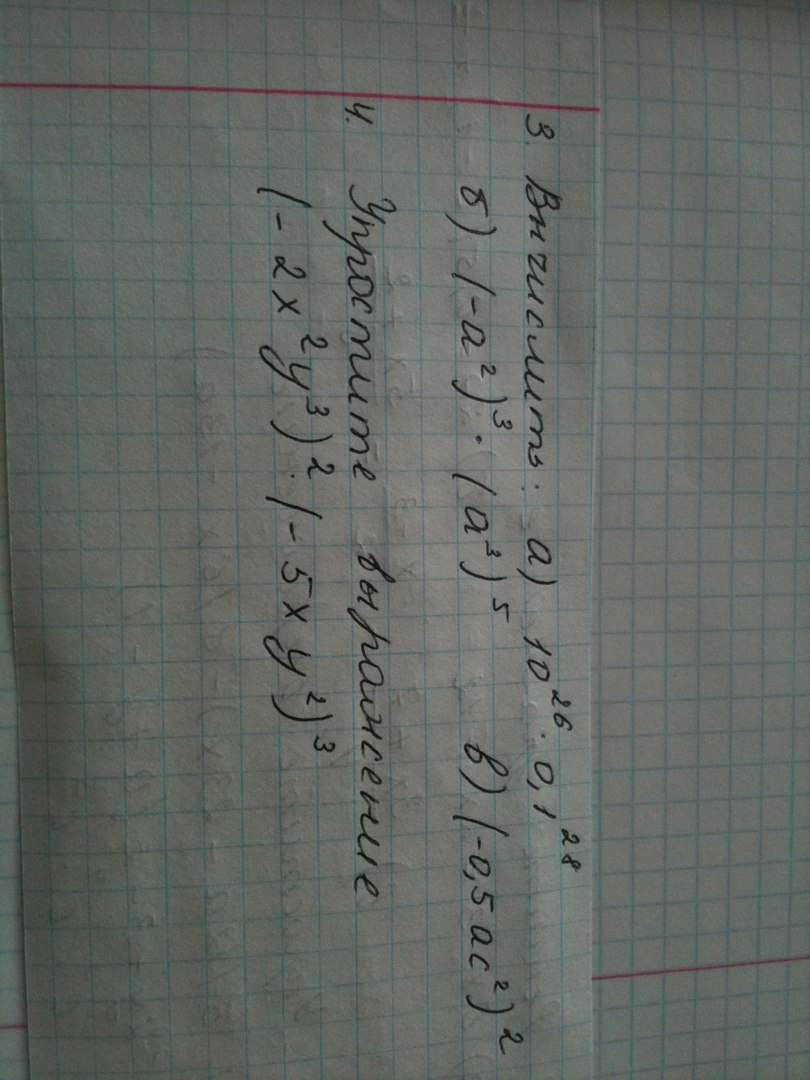 3. Вычислить: а) 10²⁶ · 0,1²⁸
б) (-a²)³ · (a³)⁵ в) (-0,5 ac²)²
4. Упростите выражение
(-2x²y³)² · (-5xy²)³